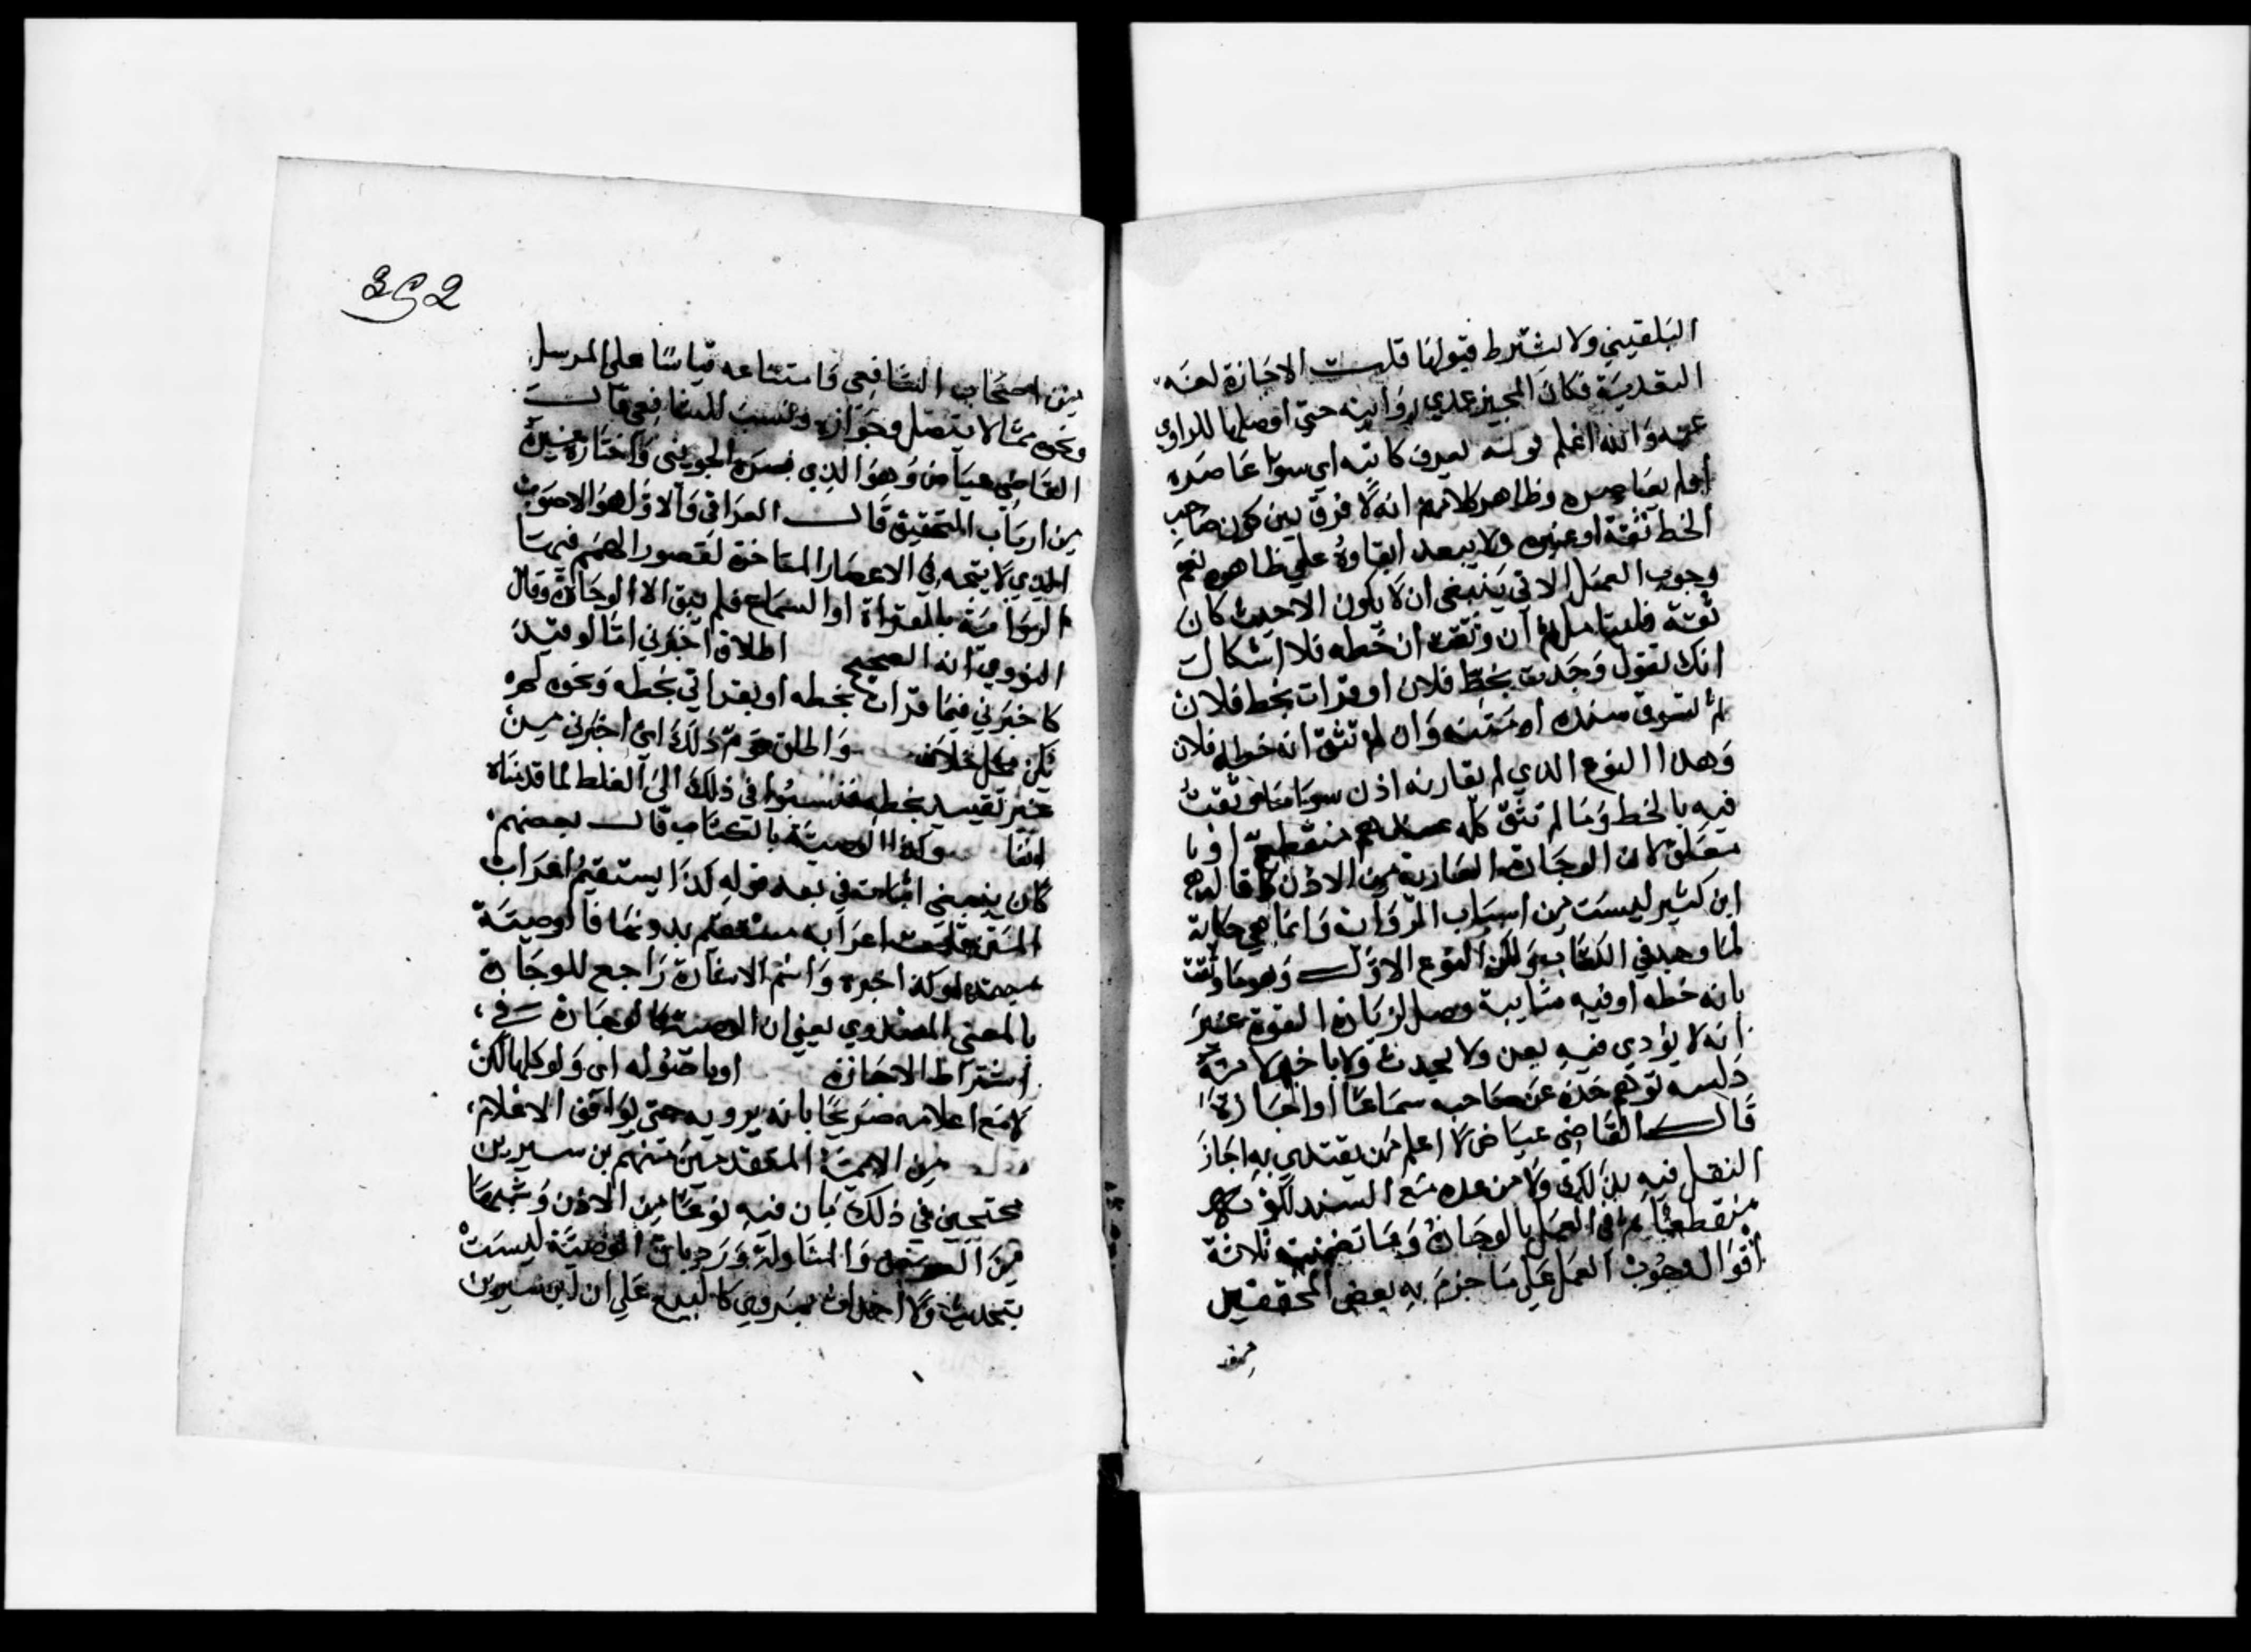 البلقيني ولا يشترط قبولها قلت الاجازة لغة
التعدية فكان المجيز عدي روايته حتى اوصلها للراوي
عنه والله اعلم قوله لعدي كاتبه اي سوا عاصره
اولم يعاصره وظاهر كلامهم انه لا فرق بين كون صاحب
الخط ثقة او غيره ولا يبعد ابقاوه على ظاهره نعم
وجوب العمل الاتي ينبغي ان لا يكون الا حيث كان
ثقة فليتامل ان وثقت ان خطه فلا اشكال
انك تقول وجدت بخط فلان او قرات بخط فلان
ثم تسوق سنده او متنه وان لم تثق انه خطه فلان
وهذا النوع الذي لم يقارنه اذن سوا ما وثقت
فيه بالخط وما لم تثق كله منقطع او با
معلق لان الوجادة العارية من الاذن كما قال
ابن كثير ليست من ابواب الرواية وانما هي حكاية
لما وجد في الكتاب ولكن النوع الاول وهو ما وثقت
بانه خطه او فيه مشايبة وصل لزيادة القوة غير
انه لا يؤدي فيه بعن ولا بحدث ولا باخبر لا مرية
دلسة توهم اخذه عن صاحبه سماعا او اجازة
قال القاضي عياض لا اعلم من يقتدي به اجاز
النقل فيه بذلك ولا من عده مع السند لكونه
منقطعا ثم في العمل بالوجادة وما تضمنته ثلاثة
اقوال وجوب العمل على ما جزم به بعض المحققين
من
352
من اصحاب الشافعي وامتناعه قياسا على المرسل
ونحوه مما لا يتصل وجوازه ونسب للشافعي قال
القاضي عياض وهو الذي نصره الجويني واختاره غيره
من ارباب التحقيق قال العراقي والاول هو الاصوب
الذي لا يتجه في الاعصار المتاخرة لقصور الهمم فيها
الرواية بالقراة او السماع فلم يبق الا الوجادة وقال
النووي انه الصحيح اطلاق اخبرني اما لو قيده
كاخبرني فيما قرات بخطه او بقراتي بخطه ونحوه لم
يكن محل خلاف واطلق قوم ذلك اي اخبرني من
غير تقييد بخطه فنسبوا في ذلك الى الغلط لما قدمناه
انفا وكذا الوصية بالكتاب قال بعضهم
كان ينبغي اثبات في بعد قوله كذا يستقيم اعراب
المتن قلت اعرابه مستقيم بدونها فالوصية
مبتدا وكذا خبره واسم الاشارة راجع للوجادة
بالمعنى المصدري يعني ان الوصية كالوجادة في
اشتراط الاجازة او باصوله اي ولو كلها لكن
لا مع اعلامه صريحا بانه يرويه حتى يوافق الاعلام
من الايمة المتقدمين منهم بن سيرين
محتجين في ذلك بان فيه نوعا من الاذن وشبها
من العرض والمناولة ورد بان الوصية ليست
بتحديث ولا اخبار بمروي كالبيع على ان ابن سيرين